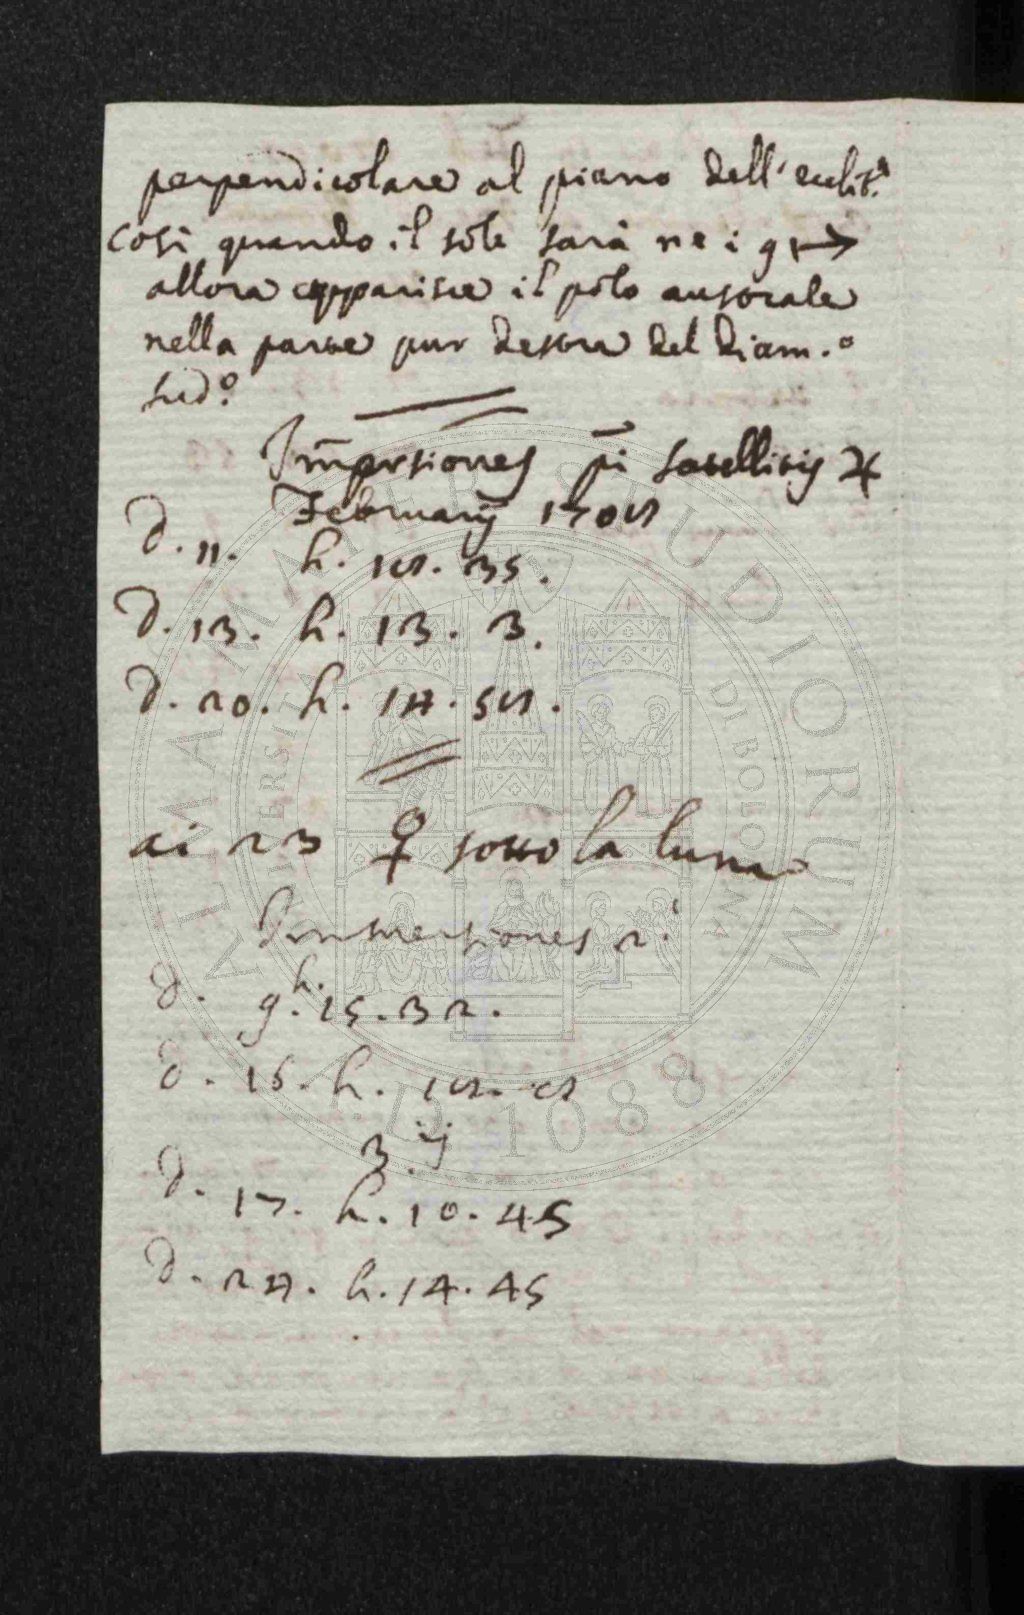 perpendicolare al piano dell'eclit.ª
Così quando il sole sarà ne i 9 ♐
allora apparisce il polo australe
nella parte pur destra del diam.º
sud.º
Immersiones pi satellitis ♃
Februarij 1706
d. 11. h. 16. 35.
d. 13. h. 13. 3.
d. 20. h. 14. 56.
ai 23 ♀ sotto la luna
Immersiones 2.i
d. 9. h. 15. 32.
d. 16. h. 16. 6
3.ij
d. 17. h. 10. 45
d. 24. h. 14. 45
ALMA MATER STUDIORUM
UNIVERSITÀ DI BOLOGNA
A.D. 1088